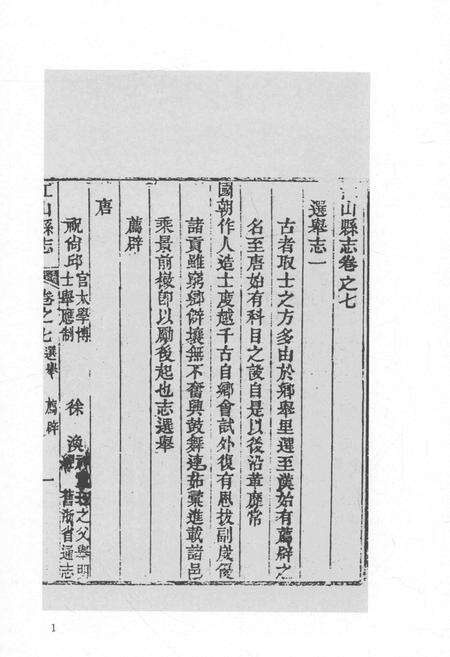 山縣志卷之七
選舉志一
古者取士之方多由於鄉舉里選至漢始有薦辟之
名至唐始有科目之設自是以後沿革靡常
國朝作人造士度越千古自鄉會試外復有恩拔副歲優
諸貢雖窮鄉僻壤無不奮興鼓舞連茹彙進載諸邑
乘景前徽即以勵後起也志選舉
薦辟
唐
祝尙邱 官太學博士舉應制
徐渙 之父舉明 舊浙省通志
江山縣志 卷之七 選舉 薦辟 一
1